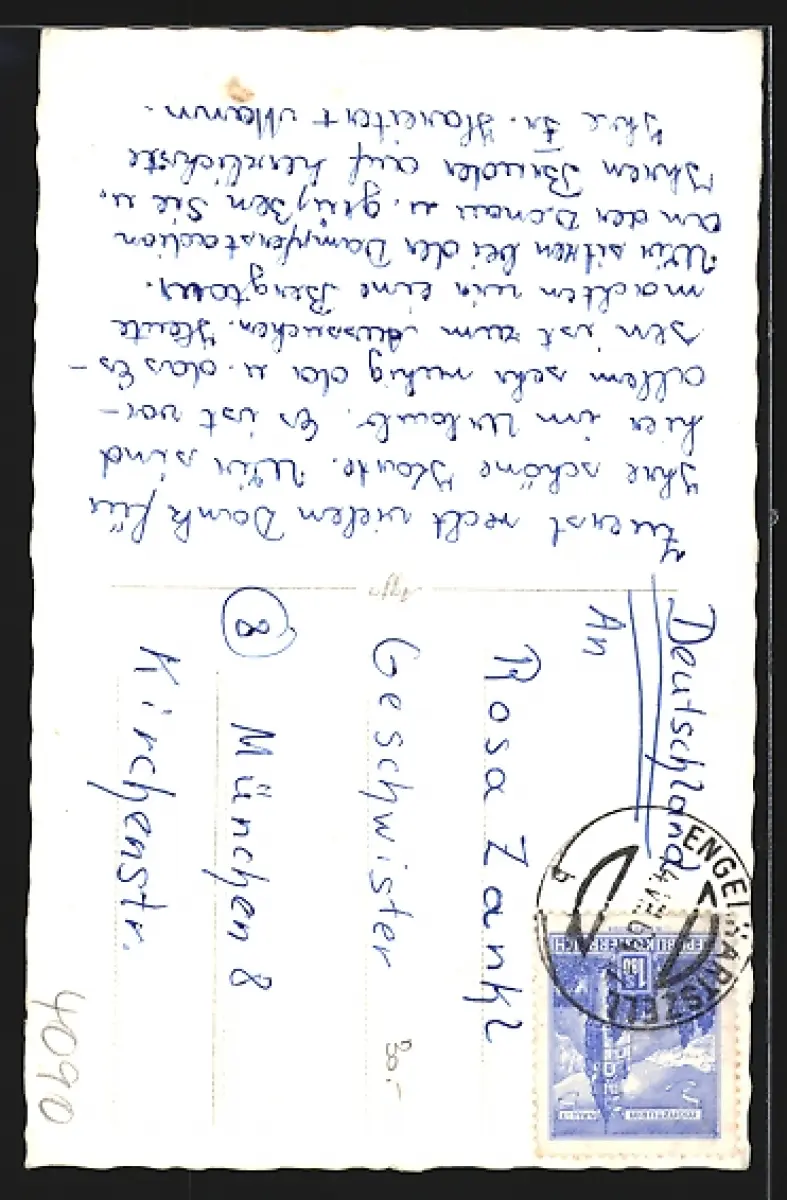 Zuerst recht vielen Dank für
Ihre schöne Karte. Wir sind
hier im Urlaub. Es ist vor-
allem sehr ruhig da u. das Es-
sen ist zum Aussuchen. Heute
machten wir eine Bergtour.
Wir sitzen bei der Dampferstation
an der Donau u. grüßen Sie u.
Ihren Bruder auf herzlichste
Ihre Fr. + Mann.
Deutschland
An
Rosa Zankl
Geschwister
8
München 8
Kirchenstr.
ENGELHARTSZELL
REPUBLIK ÖSTERREICH
1.80
MÜNZTURM
4090
30.-